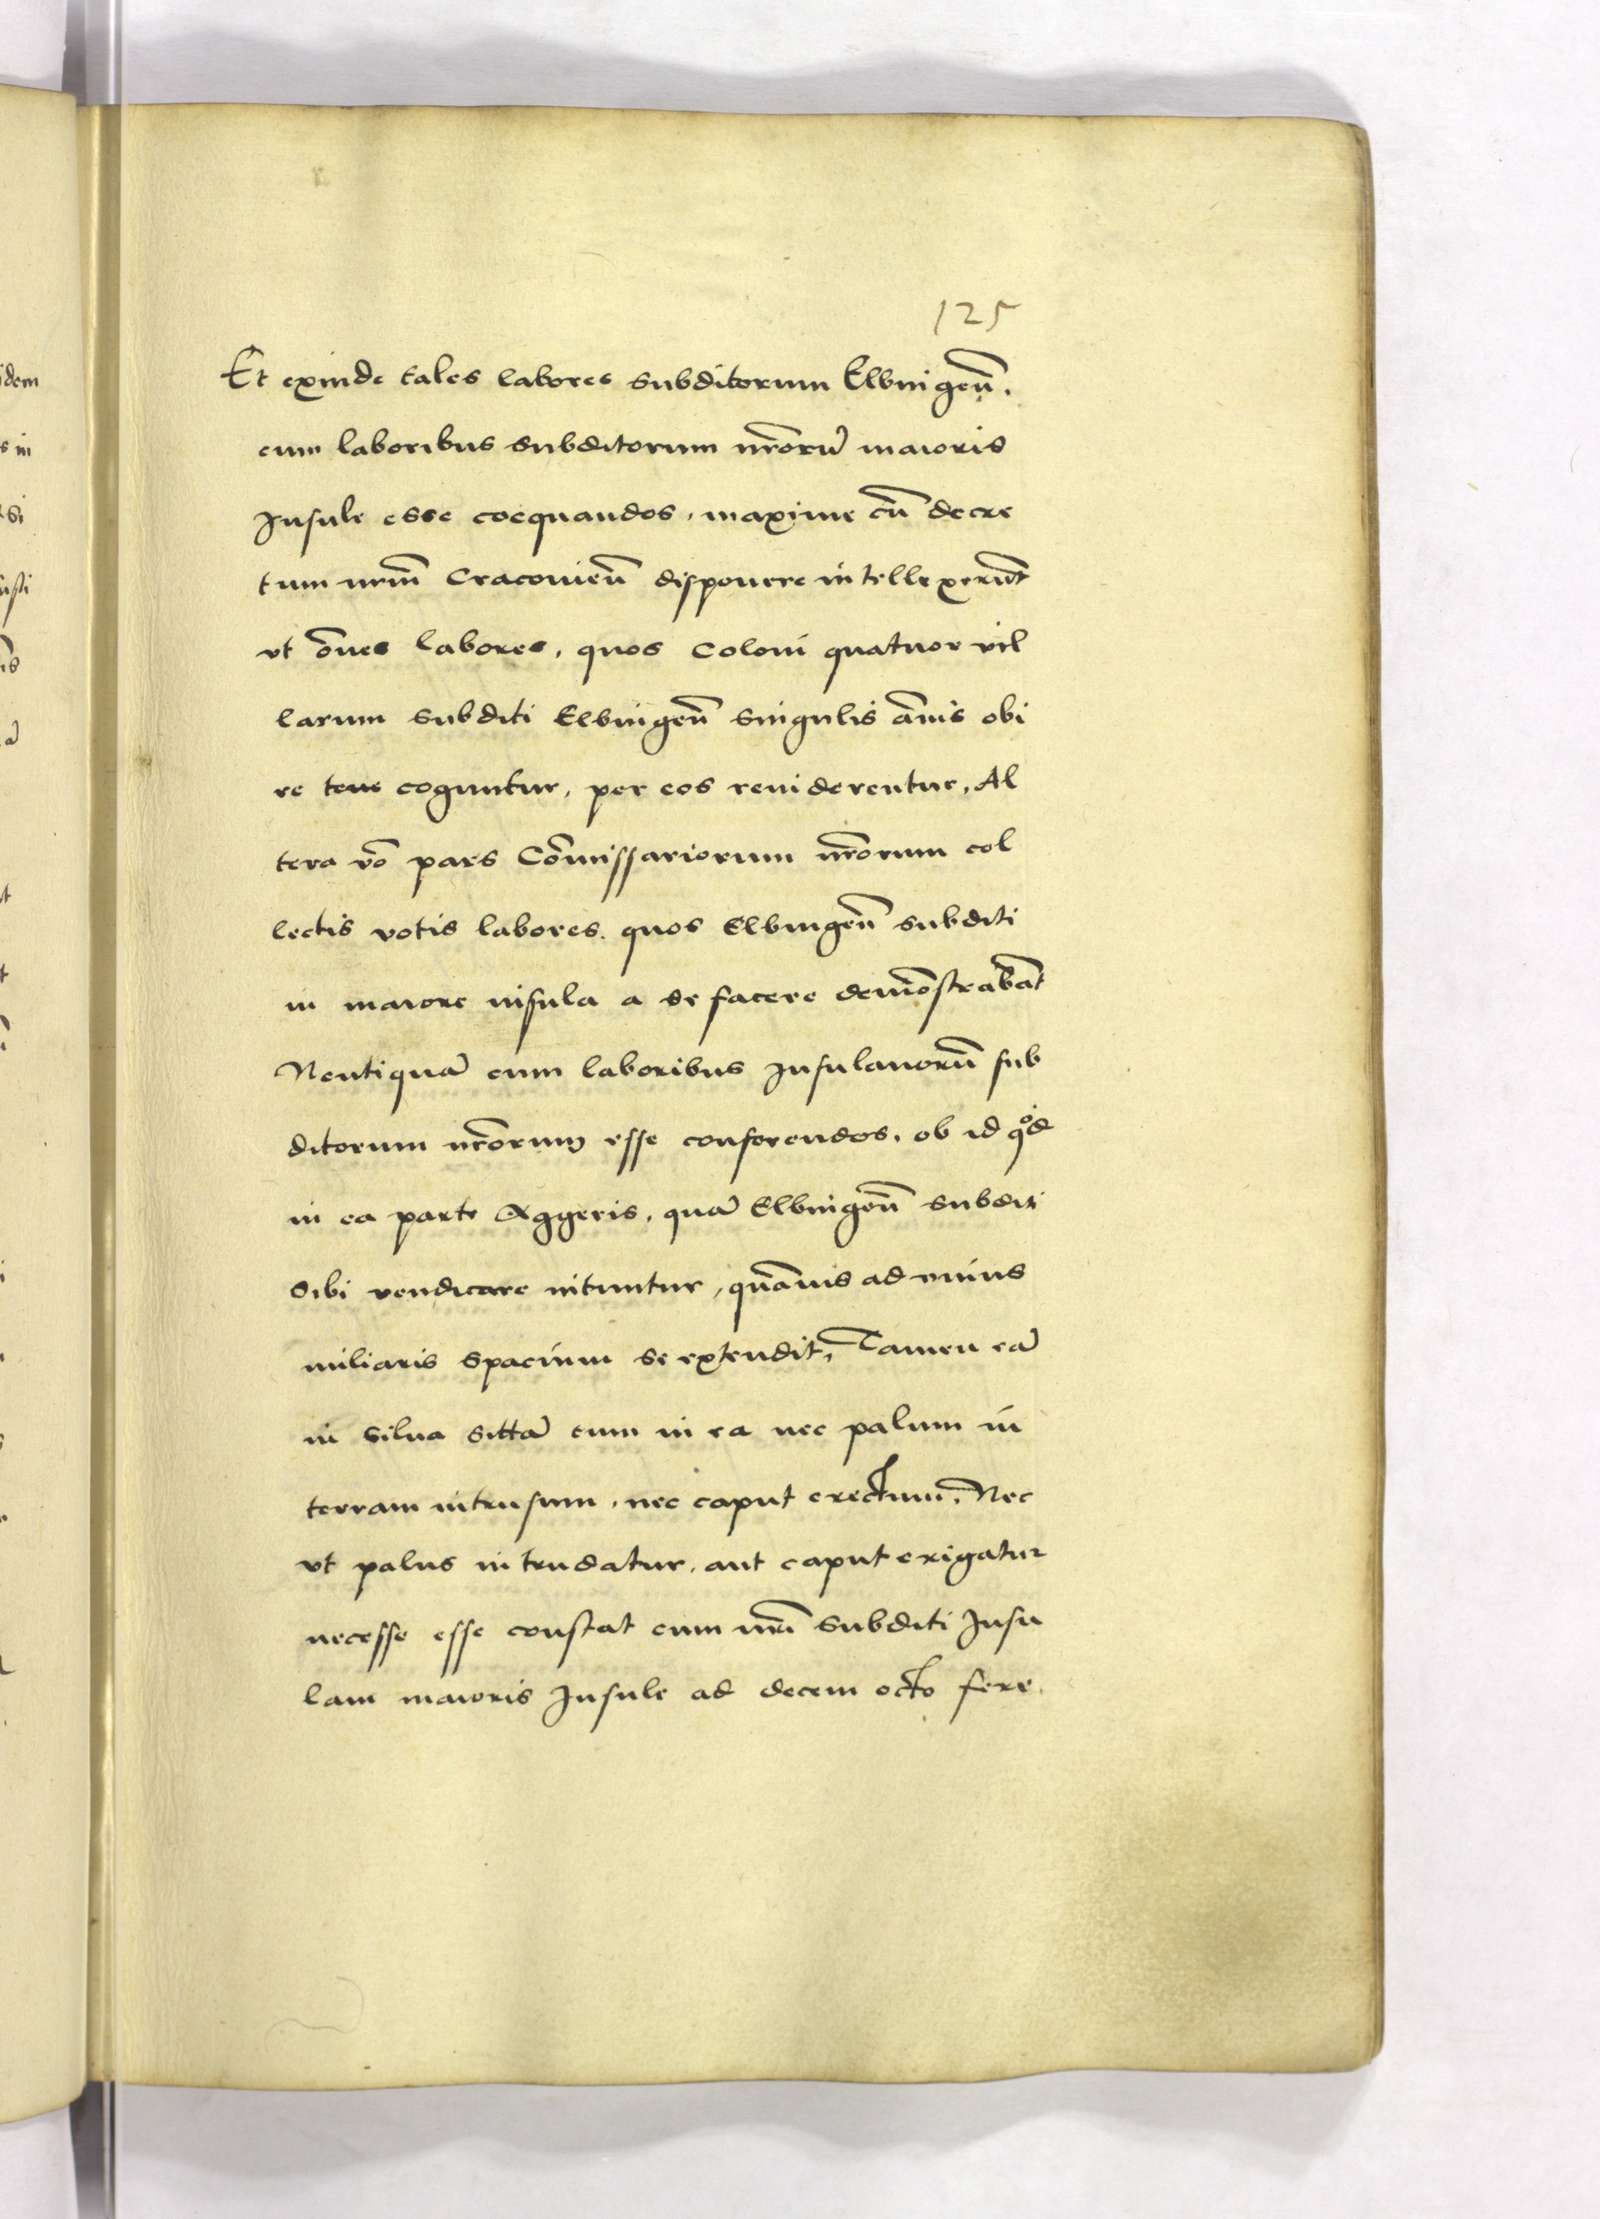 125
Et exinde tales labores subditorum Elbingen̄.
cum laboribus subditorum nr̄orū maioris
Insule esse coequandos, maxime cū decre
tum nrm̄ Cracovien̄ disponere intellexerūt
vt ōnes labores, quos Coloni quatuor vil
larum subditi Elbingen̄ singulis ānis obi
re tene coguntur, per eos reviderentur, Al
tera vō pars Cōmissariorum nr̄orum col
lectis votis labores. quos Elbingen̄ subditi
in maiore insula a se facere demōstrabāt
Neutiquā cum laboribus Insulanorū sub
ditorum nr̄orum esse conferendos, ob id qd
in ea parte Aggeris, quā Elbingen̄ subditi
sibi vendicare nituntur, quāvis ad unius
miliaris spacium se extendit, Tamen eā
in silva sittā cum in ea nec palum in
terram intrusum, nec caput erectum, Nec
vt palus intrudatur, aut caput erigatur
necesse esse constat cum nrī subditi Insu
lam maioris Insule ad decem octo fere.
idem
s in
si
usti
is